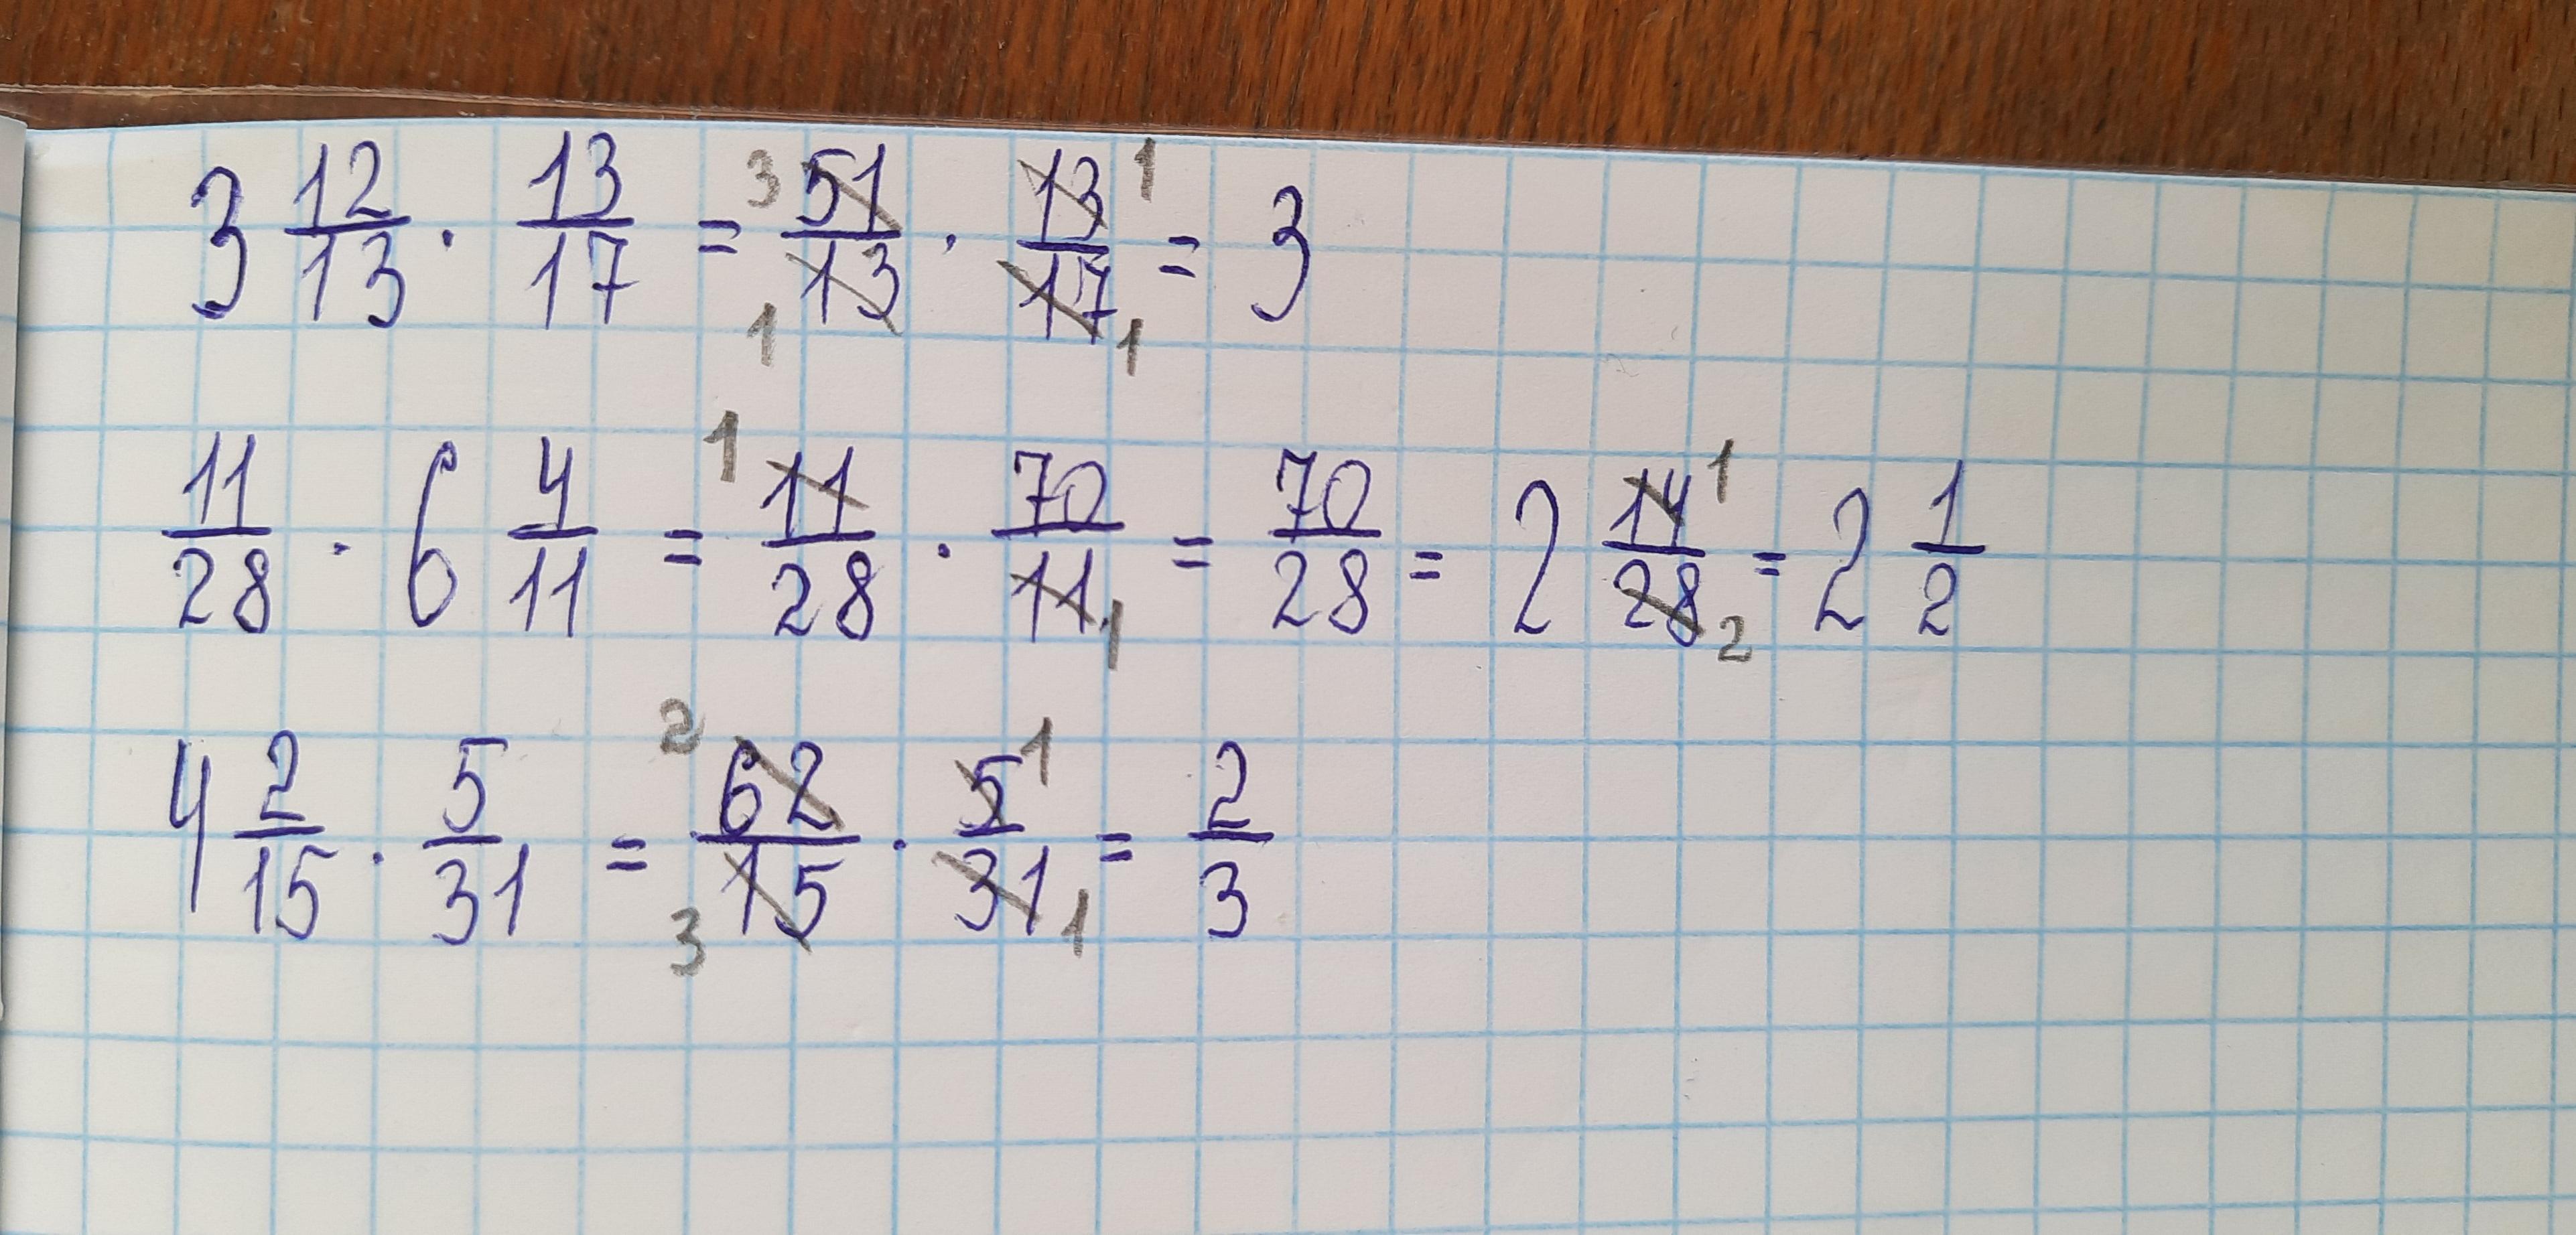 3 12/13 · 13/17 = 3 51/13 1 · 13/17 1 1 = 3
11/28 · 6 4/11 = 1 11/28 · 70/11 1 = 70/28 = 2 14/28 1 2 = 2 1/2
4 2/15 · 5/31 = 2 62/15 3 · 5/31 1 1 = 2/3